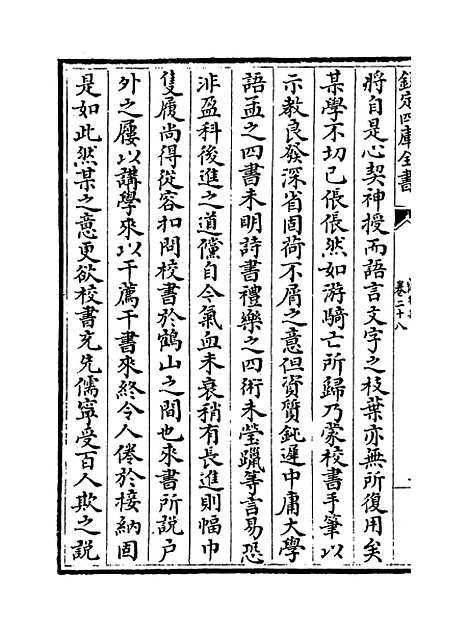 欽定四庫全書
卷二十八
將自是心契神授而語言文字之枝葉亦無所復用矣
某學不切已倀倀然如游騎亡所歸乃蒙校書手筆以
示教良發深省固荷不屑之意但資質鈍遲中庸大學
語孟之四書未明詩書禮樂之四術未瑩躐等言易恐
非盈科後進之道儻自今氣血未衰稍有長進則幅巾
隻履尚得從容扣問校書於鶴山之間也來書所說戸
外之屨以講學來以干薦干書來終令人倦於接納固
是如此然某之意更欲校書充先儒寜受百人欺之說